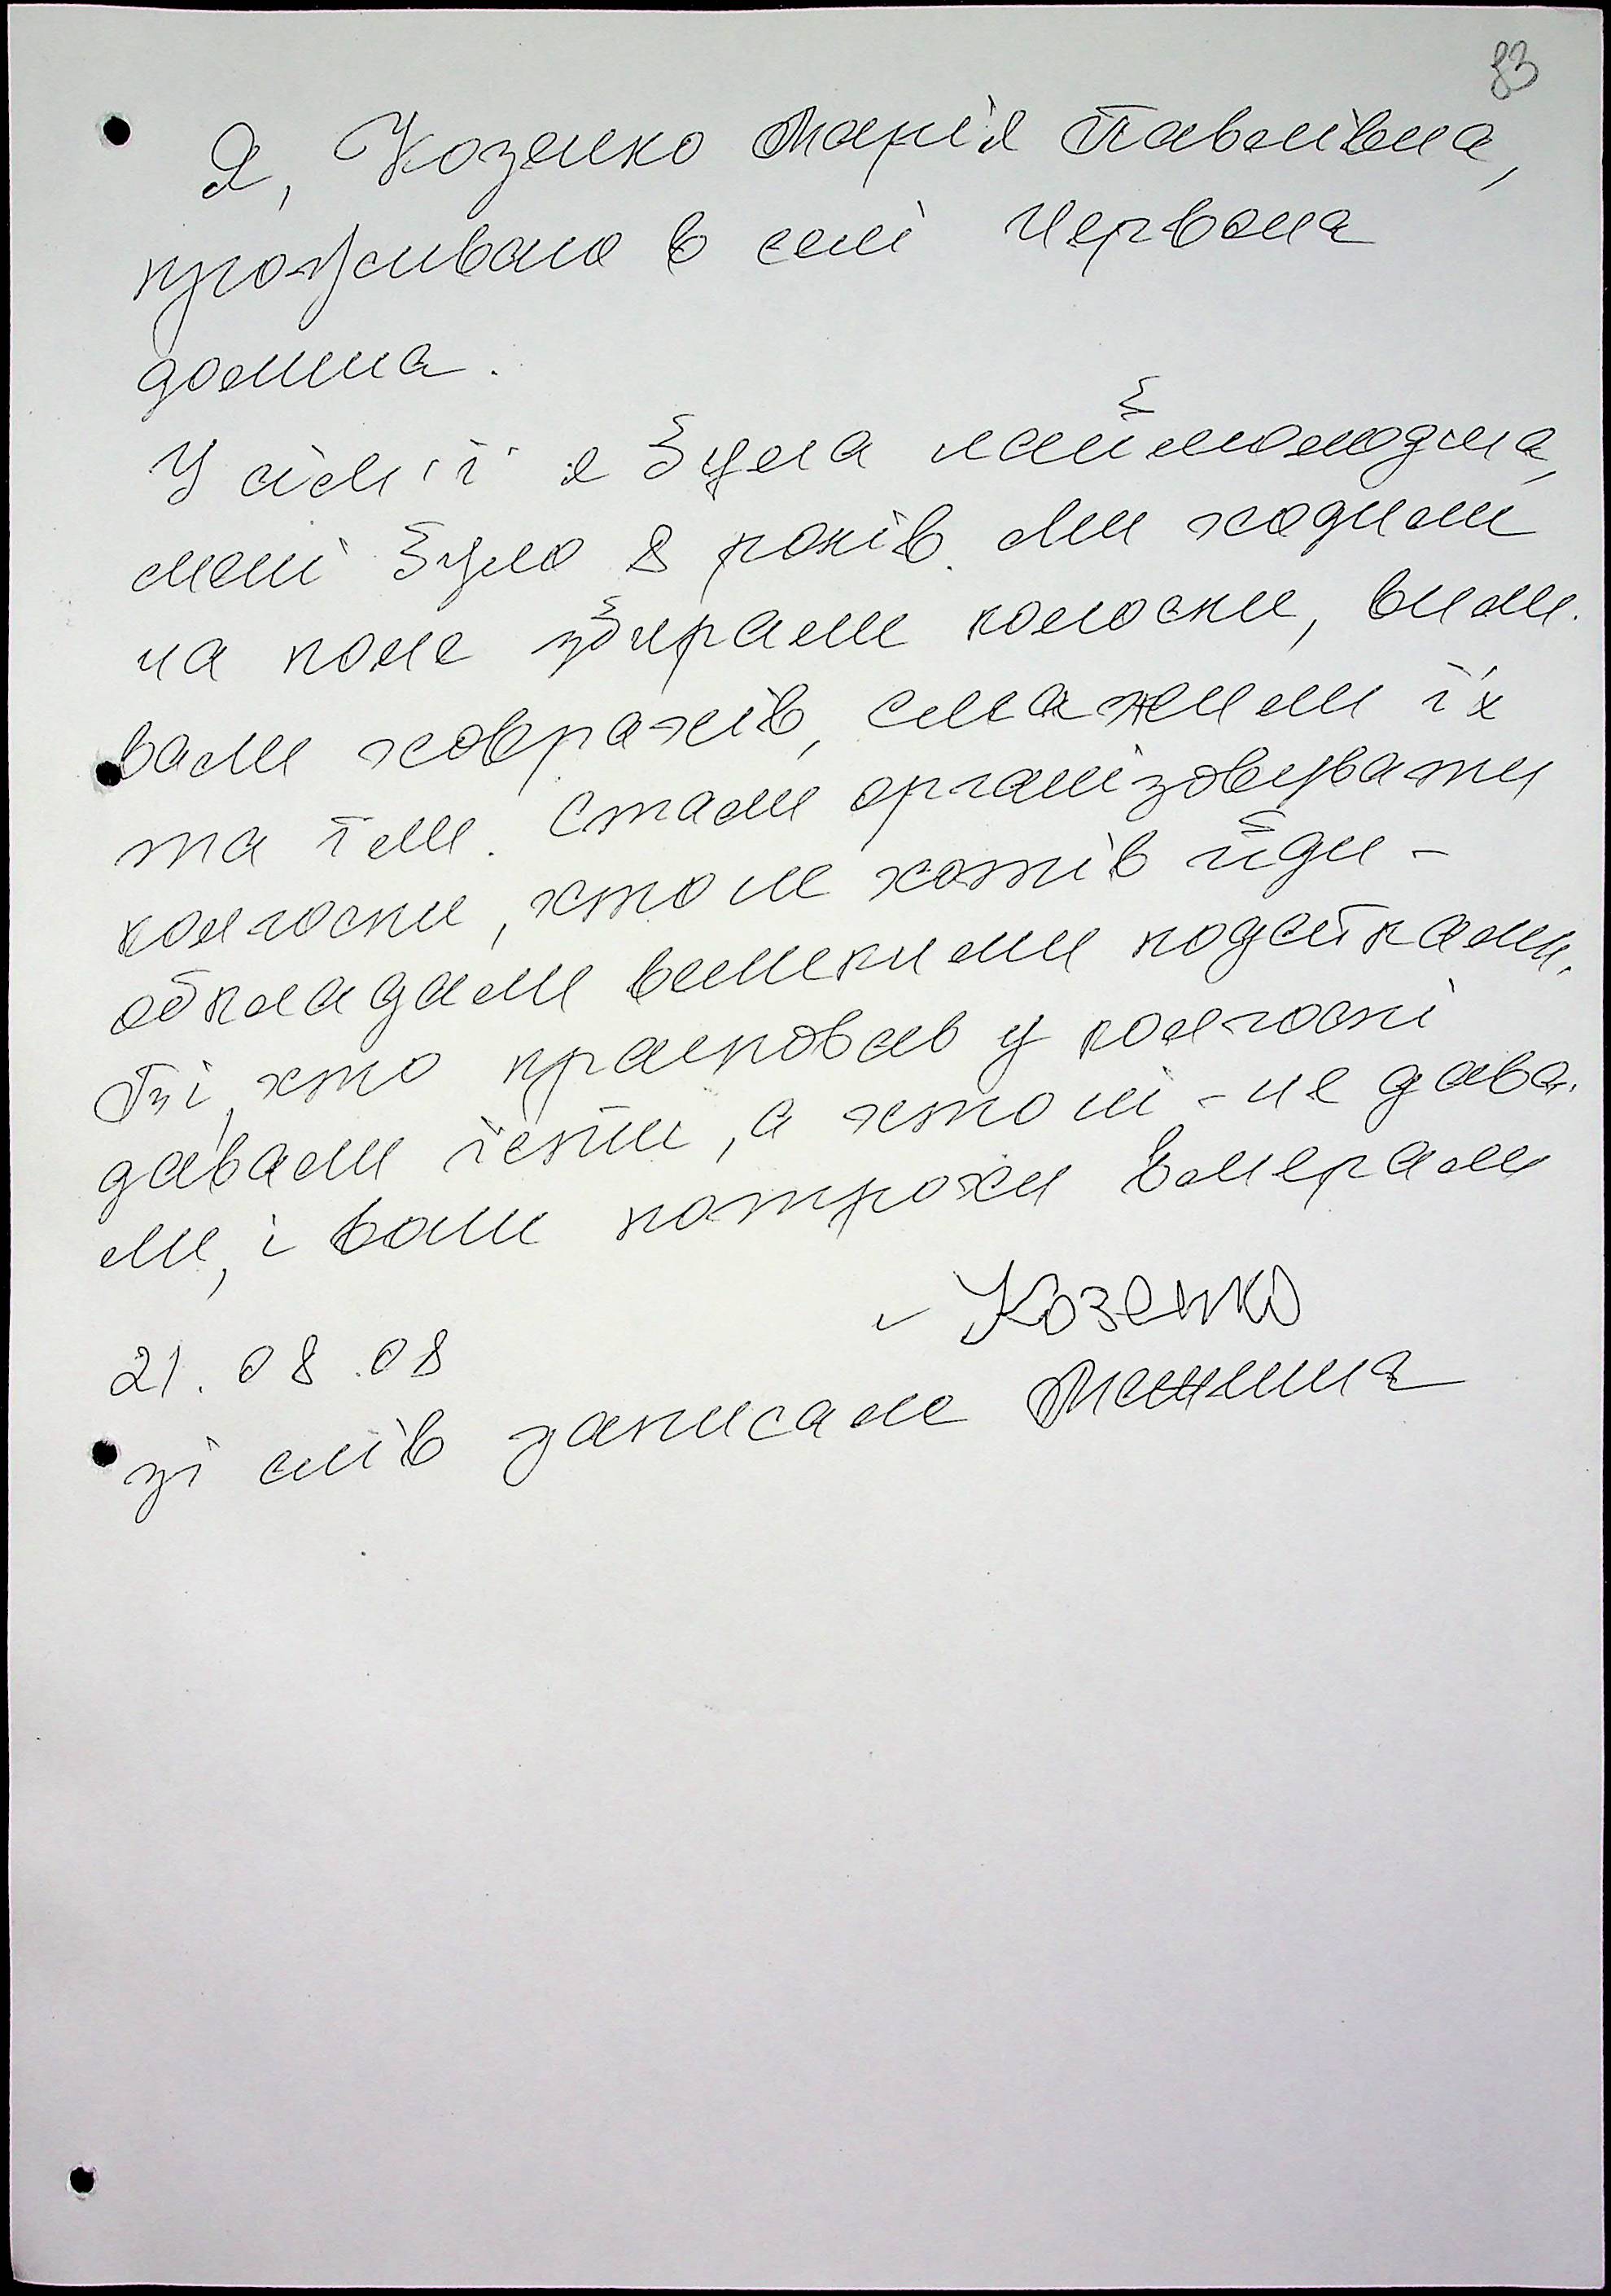 83
Я, Козенко Марія Павлівна,
проживаю в селі Червона
долина.
У сім'ї я була наймолодша,
мені було 8 років. Ми ходили
на поле збирали колоски, вили-
вали ховрахів, смажили їх
та їли. Стали організовувати
колгоспи, хто не хотів йди -
обкладали великими податками.
Ті, хто працював у колгоспі
давали їсти, а хто ні - не дава-
ли, і вони потрохи вмерали
Козенко
21.08.08
зі слів записала